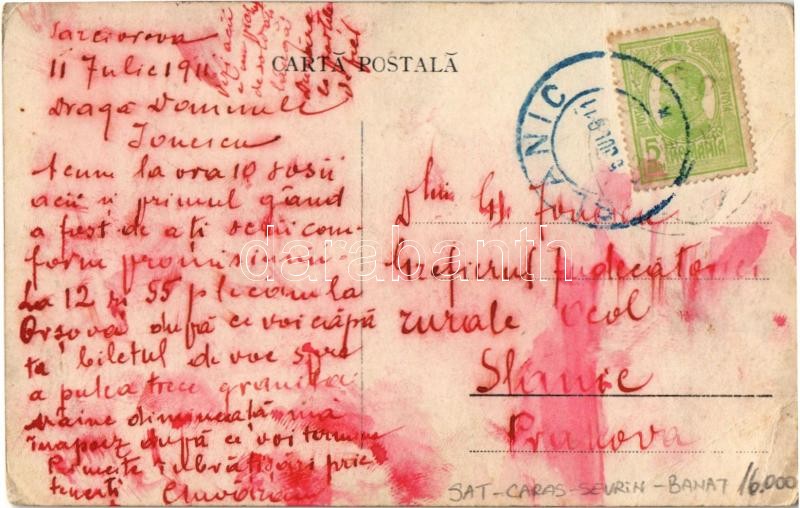 11 Iulie 1911
CARTĂ POSTALĂ
Dragă Domnule
Ionescu
Acum la ora 10 sosii
aci și primul gând
a fost de a ți scrii com-
form promisiunii
La 12 și 55 plecăm la
Orșova după ce voi căpă
ta biletul de voe spre
a putea trece granița
Mâine dimineață mă
înapoez după ce voi termina
Primește îmbrățișări prie
tenești
SLANIC
5
ROMANIA
Dlui Gh Ionescu
Grefierul Judecătoriei
rurale Ocol
Slănic
Prahova
darabanth
SAT-CARAS-SEVRIN-BANAT 16.000